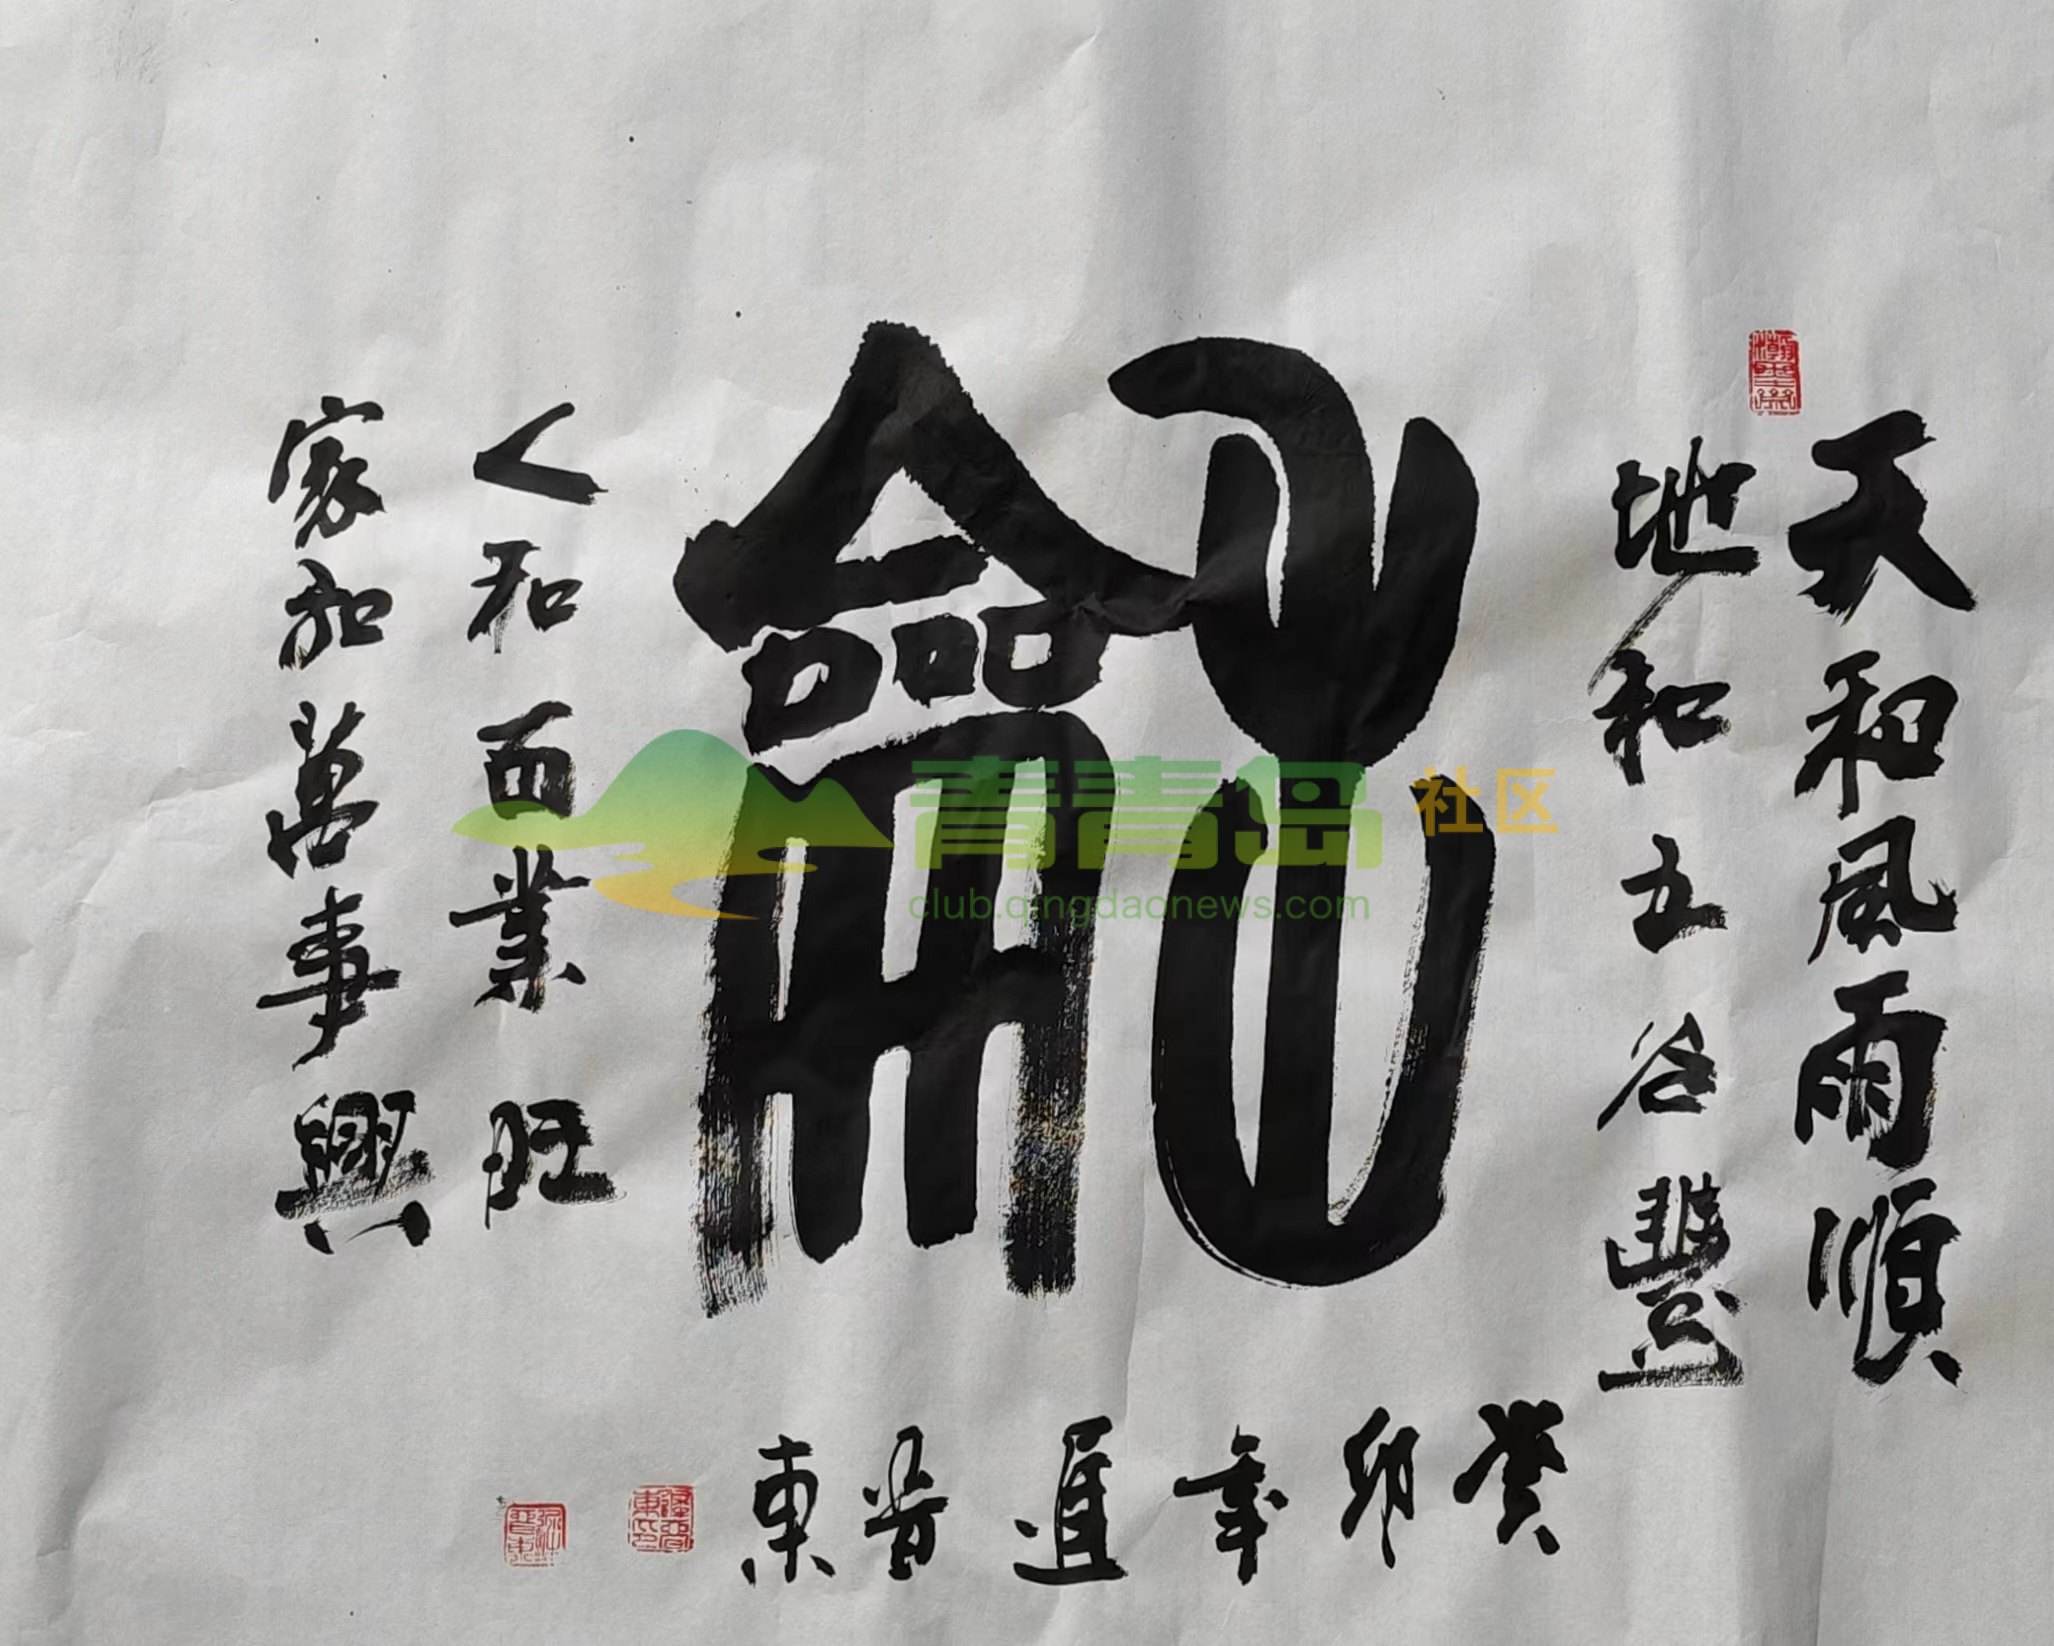 天和風雨順
地和五谷豐
龢
人和百業旺
家和萬事興
癸卯年遲晋東
青青岛社区
club.qingdaonews.com